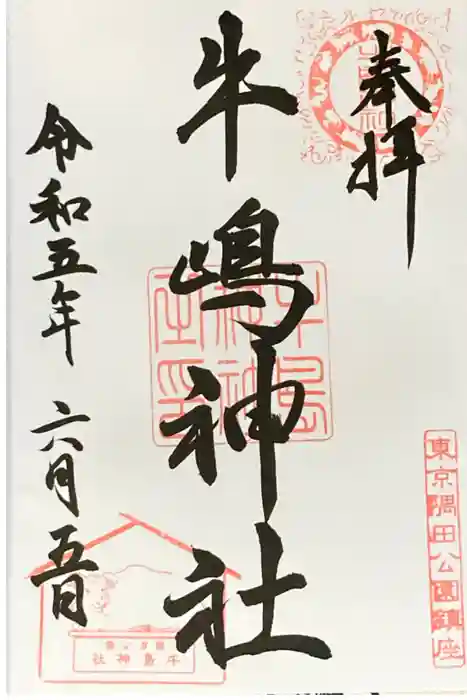 奉拝
東京隅田公園鎮座
牛嶋神社
牛島神社之印
令和五年 六月五日
牛島神社